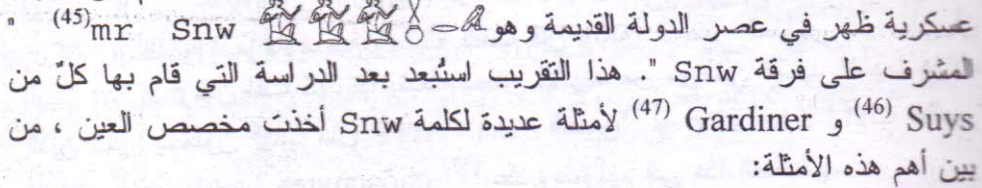 عسكرية ظهر في عصر الدولة القديمة وهو mr Snw (45) "
المشرف على فرقة Snw ". هذا التقريب استُبعد بعد الدراسة التي قام بها كلّ من
Suys (46) و Gardiner (47) لأمثلة عديدة لكلمة Snw أخذت مخصص العين ، من
بين أهم هذه الأمثلة: